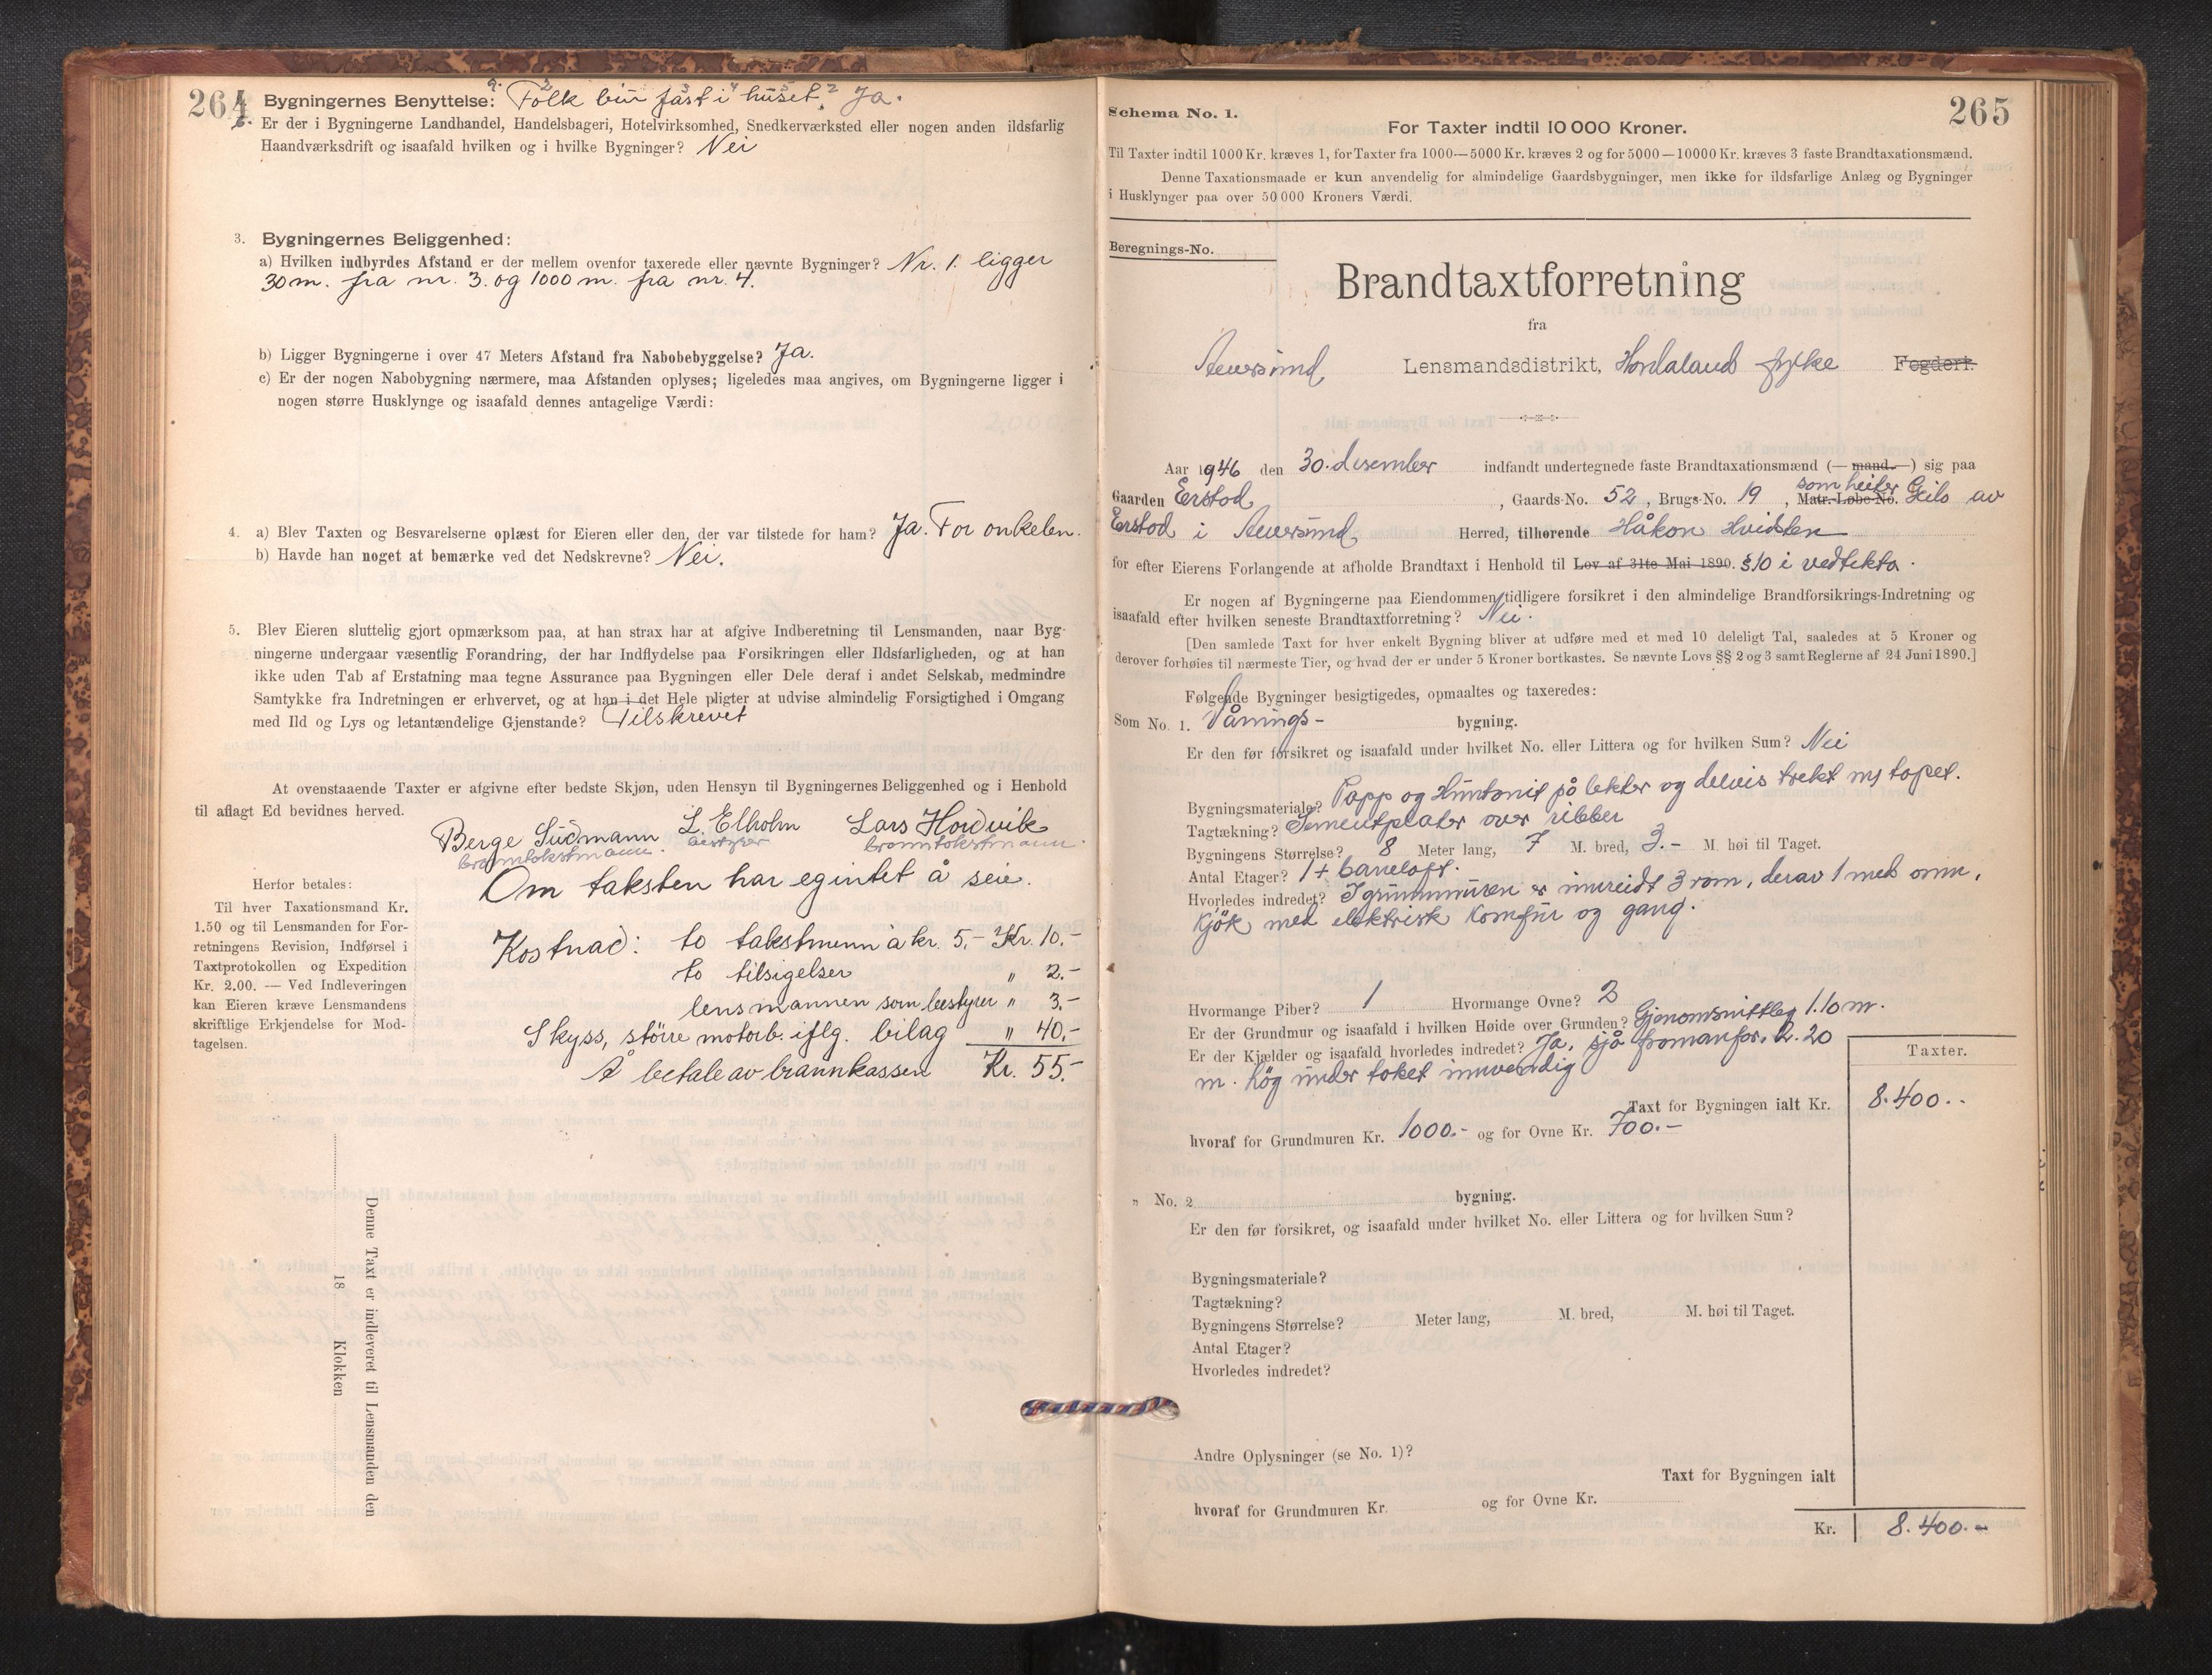 264
Bygningernes Benyttelse: Folk bur fast i huset, Ja.
Er der i Bygningerne Landhandel, Handelsbageri, Hotelvirksomhed, Snedkerværksted eller nogen anden ildsfarlig
Haandværksdrift og isaafald hvilken og i hvilke Bygninger? Nei
3. Bygningernes Beliggenhed:
a) Hvilken indbyrdes Afstand er der mellem ovenfor taxerede eller nævnte Bygninger? Nr. 1 ligger
30 m. fra nr. 3. og 1000 m. fra nr. 4.
b) Ligger Bygningerne i over 47 Meters Afstand fra Nabobebyggelse? Ja.
c) Er der nogen Nabobygning nærmere, maa Afstanden oplyses; ligeledes maa angives, om Bygningerne ligger i
nogen større Husklynge og isaafald dennes antagelige Værdi:
4. a) Blev Taxten og Besvarelserne oplæst for Eieren eller den, der var tilstede for ham? Ja. For onkelen.
b) Havde han noget at bemærke ved det Nedskrevne? Nei.
5. Blev Eieren sluttelig gjort opmærksom paa, at han strax har at afgive Indberetning til Lensmanden, naar Byg-
ningerne undergaar væsentlig Forandring, der har Indflydelse paa Forsikringen eller Ildsfarligheden, og at han
ikke uden Tab af Erstatning maa tegne Assurance paa Bygningen eller Dele deraf i andet Selskab, medmindre
Samtykke fra Indretningen er erhvervet, og at han i det Hele pligter at udvise almindelig Forsigtighed i Omgang
med Ild og Lys og letantændelige Gjenstande? Tilskrevet
At ovenstaaende Taxter er afgivne efter bedste Skjøn, uden Hensyn til Bygningernes Beliggenhed og i Henhold
til aflagt Ed bevidnes herved.
Berge Sudmann L. Elholm Lars Hordvik
branntakstmann. bestyrer branntakstmann.
Om taksten har eg intet å seie.
Herfor betales:
Til hver Taxationsmand Kr.
1.50 og til Lensmanden for For-
retningens Revision, Indførsel i
Taxtprotokollen og Expedition
Kr. 2.00. — Ved Indleveringen
kan Eieren kræve Lensmandens
skriftlige Erkjendelse for Mod-
tagelsen.
Kostnad: to takstmenn à kr. 5,- Kr. 10.-
to tilsigelser " 2.-
lensmannen som bestyrer " 3.-
Skyss, större motorb. iflg. bilag " 40.-
Å betale av brannkassen Kr. 55.-
Denne Taxt er indleveret til Lensmanden den
18 Klokken
265
Schema No. 1.
For Taxter indtil 10 000 Kroner.
Til Taxter indtil 1000 Kr. kræves 1, for Taxter fra 1000—5000 Kr. kræves 2 og for 5000—10000 Kr. kræves 3 faste Brandtaxationsmænd.
Denne Taxationsmaade er kun anvendelig for almindelige Gaardsbygninger, men ikke for ildsfarlige Anlæg og Bygninger
i Husklynger paa over 50 000 Kroners Værdi.
Beregnings-No.
Brandtaxtforretning
fra
Lensmandsdistrikt, Hordaland fylke Fogderi.
Aar 1946 den 30. desember indfandt undertegnede faste Brandtaxationsmænd (— mand. —) sig paa
Gaarden Erstad, Gaards-No. 52, Brugs-No. 19, Matr.-Løbe-No. som heiter Geilo av
Erstad i Herred, tilhørende Håkon Hvidsten
for efter Eierens Forlangende at afholde Brandtaxt i Henhold til Lov af 31te Mai 1890. §10 i vedtekta.
Er nogen af Bygningerne paa Eiendommen tidligere forsikret i den almindelige Brandforsikrings-Indretning og
isaafald efter hvilken seneste Brandtaxtforretning? Nei.
[Den samlede Taxt for hver enkelt Bygning bliver at udføre med et med 10 deleligt Tal, saaledes at 5 Kroner og
derover forhøies til nærmeste Tier, og hvad der er under 5 Kroner bortkastes. Se nævnte Lovs §§ 2 og 3 samt Reglerne af 24 Juni 1890.]
Følgende Bygninger besigtigedes, opmaaltes og taxeredes:
Som No. 1. Vånings- bygning.
Er den før forsikret og isaafald under hvilket No. eller Littera og for hvilken Sum? Nei
Bygningsmateriale? Papp og Huntonit på lekter og delvis trekt m/ tapet.
Tagtækning? Sementplater over ribber
Bygningens Størrelse? 8 Meter lang, 7 M. bred, 3.- M. høi til Taget.
Antal Etager? 1 + bareloft.
Hvorledes indredet? I grunnmuren er innreidt 3 rom, derav 1 med omn,
kjök med elektrisk komfur og gang.
Hvormange Piber? 1 Hvormange Ovne? 2
Er der Grundmur og isaafald i hvilken Høide over Grunden? Gjenomsnittleg 1.10 m.
Er der Kjælder og isaafald hvorledes indredet? Ja, sjå framanfor. 2.20
m. høg under taket innvendig
Taxter.
Taxt for Bygningen ialt Kr. 8.400..
hvoraf for Grundmuren Kr. 1000.- og for Ovne Kr. 700.-
" No. 2 bygning.
Er den før forsikret, og isaafald under hvilket No. eller Littera og for hvilken Sum?
Bygningsmateriale?
Tagtækning?
Bygningens Størrelse? Meter lang, M. bred, M. høi til Taget.
Antal Etager?
Hvorledes indredet?
Andre Oplysninger (se No. 1)?
Taxt for Bygningen ialt
hvoraf for Grundmuren Kr. og for Ovne Kr.
Kr. 8.400.-